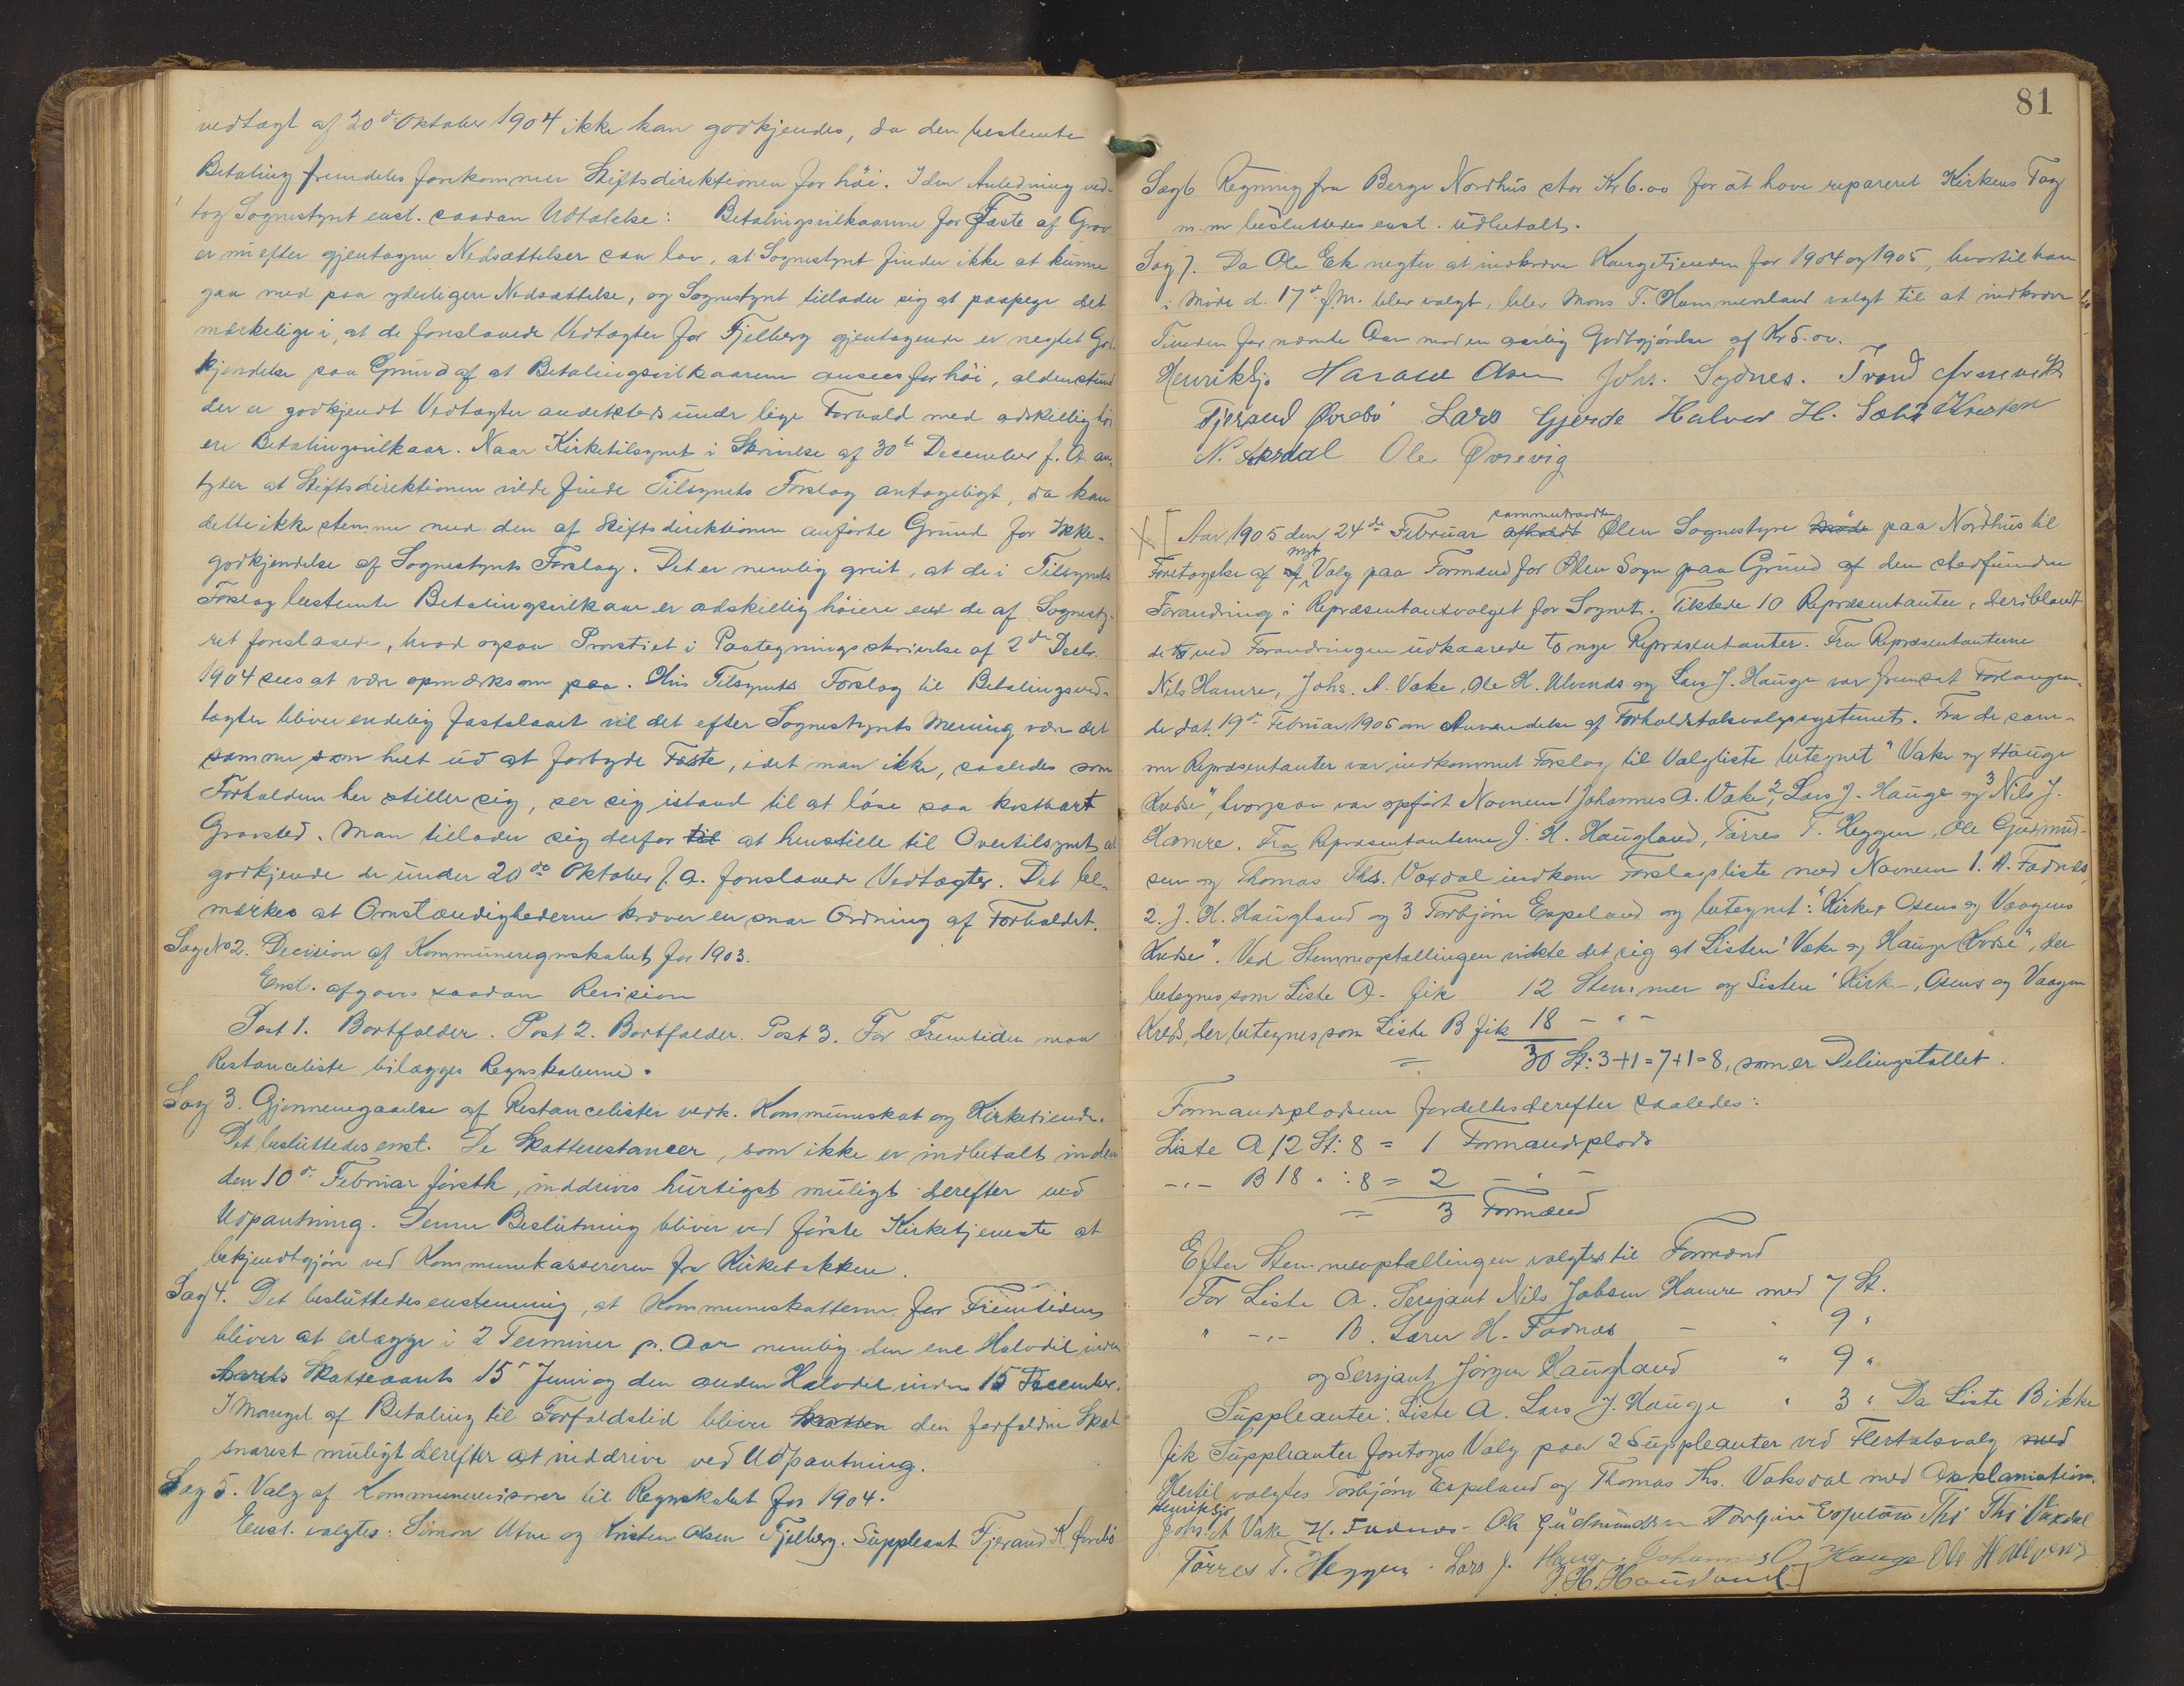 vedtagt af 20de Oktober 1904 ikke kan godkjendes, da den bestemte
Betaling fremdeles forekommer Stiftsdirektionen for höi. I den Anledning ved-
tog Sognestyret enst. saadan Udtalelse: Betalingsvilkaarene for Fæste af Grav
er nu efter gjentagne Nedsættelser saa lav, at Sognestyret finder ikke at kunne
gaa med paa yderligere Nedsættelse, og Sognestyret tillader sig at paapege det
mærkelige i, at de foreslaaede Vedtægter for Fjelberg gjentagende er negtet God-
kjendelse paa Grund af at Betalingsvilkaarene ansees for höi, aldenstund
der er godkjendt Vedtægter andetsteds under lige Forhold med adskillig höi
ere Betalingsvilkaar. Naar Kirketilsynet i Skrivelse af 30te December f. A. an-
tyder at Stiftsdirektionen vilde finde Tilsynets Forslag antageligt, da kan
dette ikke stemme med den af Stiftsdirektionen anförte Grund for Ikke-
godkjendelse af Sognestyrets Forslag. Det er nemlig greit, at de i Tilsynets
Forslag bestemte Betalingsvilkaar er adskillig höiere end de af Sognesty-
ret foreslaaede, hvad ogsaa Provstiet i Paategningsskrivelse af 2den Decbr.
1904 sees at være opmærksom paa. Hvis Tilsynets Forslag til Betalingsved-
tægter bliver endelig fastslaaet vil det efter Sognestyrets Mening være det
samme som helt ud at forbyde Fæste, idet man ikke, saaledes som
Forholdene her stiller sig, ser sig istand til at löse saa kostbart
Gravsted. Man tillader sig derfor til at henstille til Overtilsynet at
godkjende de under 20de Oktober f. A. foreslaaede Vedtægter. Det be-
mærkes at Omstændighederne kræver en snar Ordning af Forholdet.
Sag No 2. Decision af Kommuneregnskabet for 1903.
Enst. afgaves saadan Revision
Post 1. Bortfalder. Post 2. Bortfalder. Post 3. For Fremtiden maa
Restanceliste bilægges Regnskaberne.
Sag 3. Gjennemgaaelse af Restancelister vedk. Kommuneskat og Kirketiende.
Det besluttedes enst. De Skatterestancer, som ikke er indbetalt inden
den 10de Februar förstk, inddrives hurtigst muligt derefter ved
Udpantning. Denne Beslutning bliver ved förste Kirketjeneste at
bekjendtgjöre ved Kommunekassereren fra Kirkebakken.
Sag 4. Det besluttedes enstemmig, at Kommuneskatterne for Fremtiden
bliver at erlægge i 2 Terminer pr. Aar nemlig den ene Halvdel inden
Skatteaarets 15de Juni og den anden Halvdel inden 15 December.
I Mangel af Betaling til Forfaldstid bliver Skatten den forfaldne Skat
snarest muligt derefter at inddrive ved Udpantning.
Sag 5. Valg af Kommunerevisorer til Regnskabet for 1904.
Enst. valgtes: Simon Utne og Kristen Olsen Fjelberg. Suppleant Fjerand K. Örebö
81
Sag 6 Regning fra Berge Nordhus stor Kr 6.00 for at have repareret Kirkens Tag
m. m besluttedes enst. udbetalt.
Sag 7. Da Ole Ek negter at indkræve Kongetienden for 1904 og 1905, hvortil han
i Möde d. 17de f.M. blev valgt, blev Mons T. Hammersland valgt til at indkræve
Tienden for nævnte Aar mod en aarlig Godtgjörelse af Kr 5.00.
Henriksjö Johs. Sydnes. Trond
Fjerand Ørebö Lars Gjerde Halvor H.
N. Aksdal Ole Øvrevig
Aar 1905 den 24de Februar afholdt sammentraadte Ølen Sognestyre Möde paa Nordhus til
Foretagelse af nyt Valg paa Formænd for Ølen Sogn paa Grund af den stedfundne
Forandring i Repræsentantvalget for Sognet. Tilstede 10 Repræsentanter, deriblandt
de to ved Forandringen udkaarede to nye Repræsentanter. Fra Repræsentanterne
Nils Hamre, Johs. A. Vake, Ole H. Ulvnds og Lars J. Hauge var fremsat Forlangen-
de dat. 19de Februar 1905 om Anvendelse af Forholdstalsvalgsystemet. Fra de sam-
me Repræsentanter var indkommet Forslag til Valgliste betegnet "Vake og Hauge
Kredse", hvorpaa var opfört Navnene 1 Johannes A. Vake, 2 Lars J. Hauge og 3 Nils J.
Hamre. Fra Repræsentanterne J. H. Haugland, Törres T. Heggen, Ole Gudmund-
sen og Thomas Ths. Vaxdal indkom Forslagsliste med Navnene 1. H. Fadnes,
2. J. H. Haugland og 3 Torbjörn Espeland og betegnet: "Kirke, Osens og Vaagens
Kredse". Ved Stemmeoptællingen viste det sig at Listen "Vake og Hauge Kredse", der
betegnes som Liste A. fik 12 Stemmer og Listen "Kirke, Osens og Vaagen
Kreds, der betegnes som Liste B fik 18 - " -
= 30 St: 3+1=7+1=8, som er Delingstallet.
Formandspladsene fordeltes derefter saaledes:
Liste A 12 St: 8 = 1 Formandsplads
-"- B 18 " : 8 = 2 - " -
= 3 Formænd
Efter Stemmeoptællingen valgtes til Formænd
For Liste A. Sersjant Nils Jakobsen Hamre med 7 St.
" -"- B. Lærer H. Fadnes - " 9 "
og Sersjant Jörgen Haugland " 9 "
Suppleanter: Liste A. Lars J. Hauge " 3 " Da Liste B ikke
fik Suppleanter foretoges Valg paa 2 Suppleanter ved Flertalsvalg med
Hertil valgtes Torbjörn Espeland og Thomas Ths. Vaksdal med Akklamation.
Henriksjö
Johs. A Vake H. Fadnes - Ole Gudmundsen Torbjörn Espeland Ths Ths Vaxdal
Törres T. Heggen. Lars J. Hauge Johannes O Hauge
J. H. Haugland